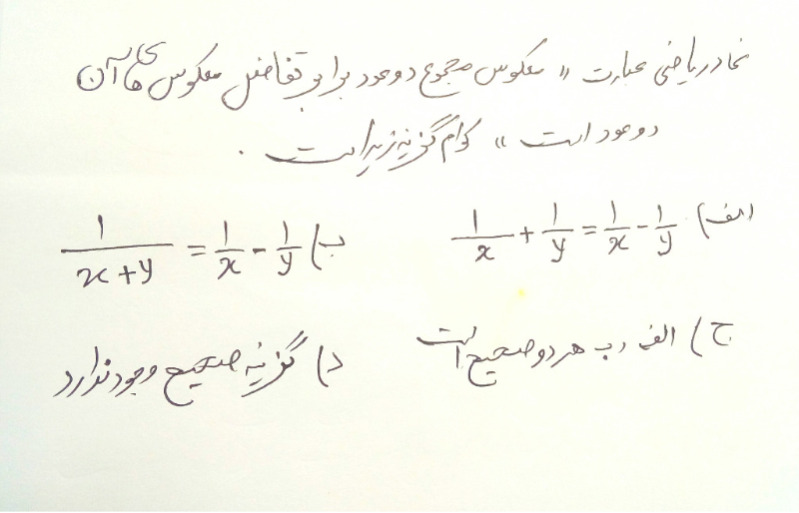 نماد ریاضی عبارت « معکوس مجموع دو عدد برابر تفاضل معکوس های آن
دو عدد است » کدام گزینه زیر است .
الف) 1/x + 1/y = 1/x - 1/y ب) 1/(x+y) = 1/x - 1/y
ج) الف و ب هر دو صحیح است د) گزینه صحیح وجود ندارد